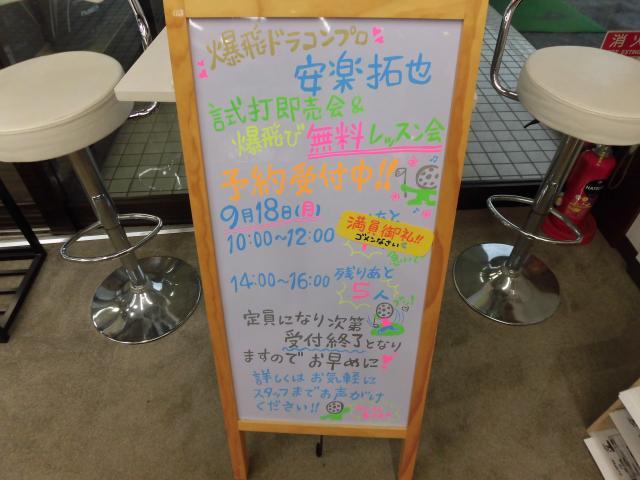 爆飛ドラコンプロ
安楽拓也
試打即売会&
爆飛び無料レッスン会
予約受付中!!
9月18日(月)
満員御礼!!
ゴメンなさい
10:00~12:00
14:00~16:00 残りあと
5人
定員になり次第
受付終了となり
ますのでお早めに
詳しくはお気軽に
スタッフまでお声がけ
ください!!
消火